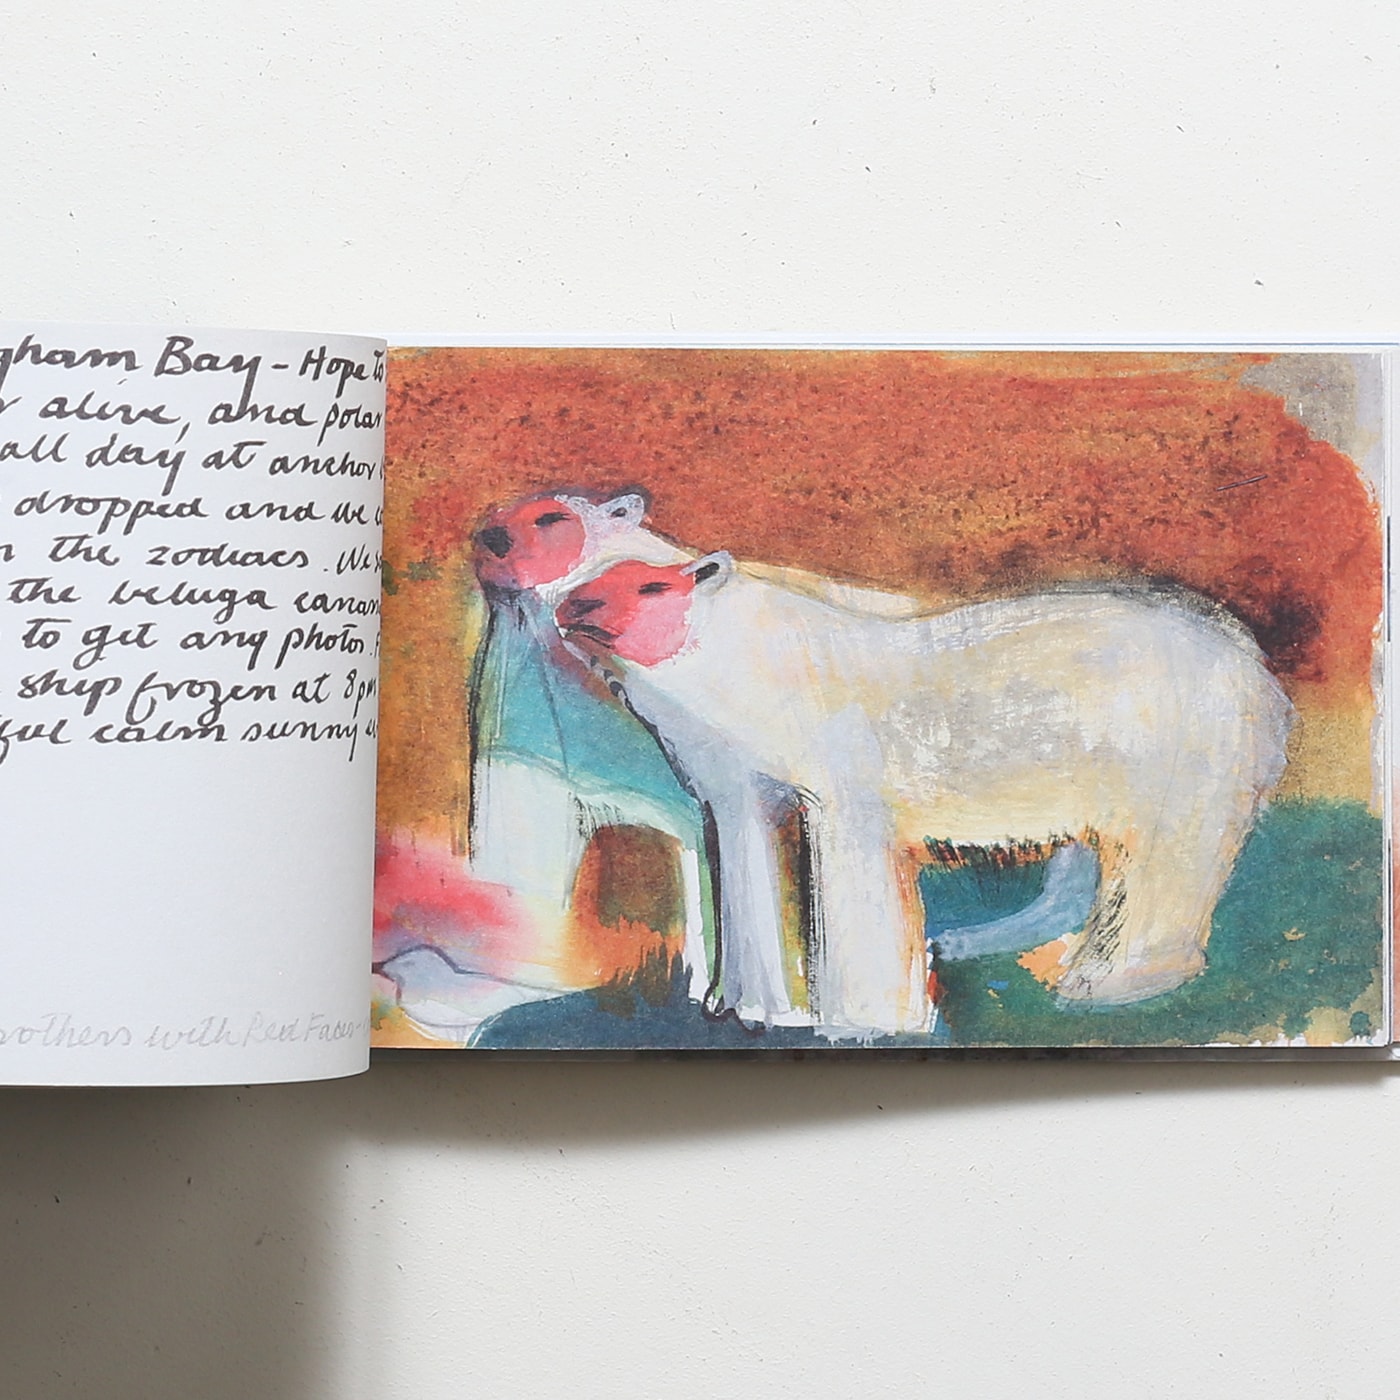 gham Bay - Hope to
r alive, and polar
all day at anchor
dropped and we
n the zodiacs. We s
the beluga canan
to get any photos. F
ship frozen at 8pm
ful calm sunny
rothers with Red Faces -